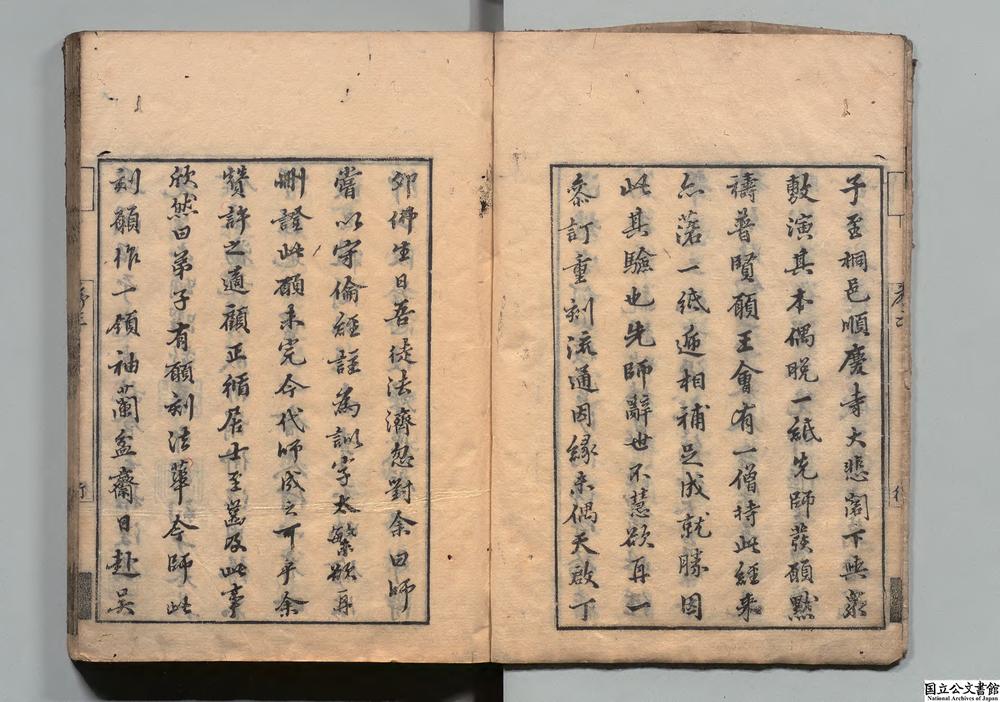 子至桐邑順慶寺大悲閣下與眾
敷演其本偶脫一紙先師發願默
禱普賢願王會有一僧持此經來
亦落一紙遞相補足成就勝因
此其驗也先師辭世不慧欲再一
叅訂重刻流通因緣未偶天啟丁
卯佛生日吾徒法濟忽對余曰師
嘗以守倫經註為訓字太繁欲再
刪證此願未完今代師成之可乎余
贊許之適顧正循居士至語及此事
欣然曰弟子有願刻法華今師此
刻願作一領袖蘭盆齋日赴吳
国立公文書館
National Archives of Japan